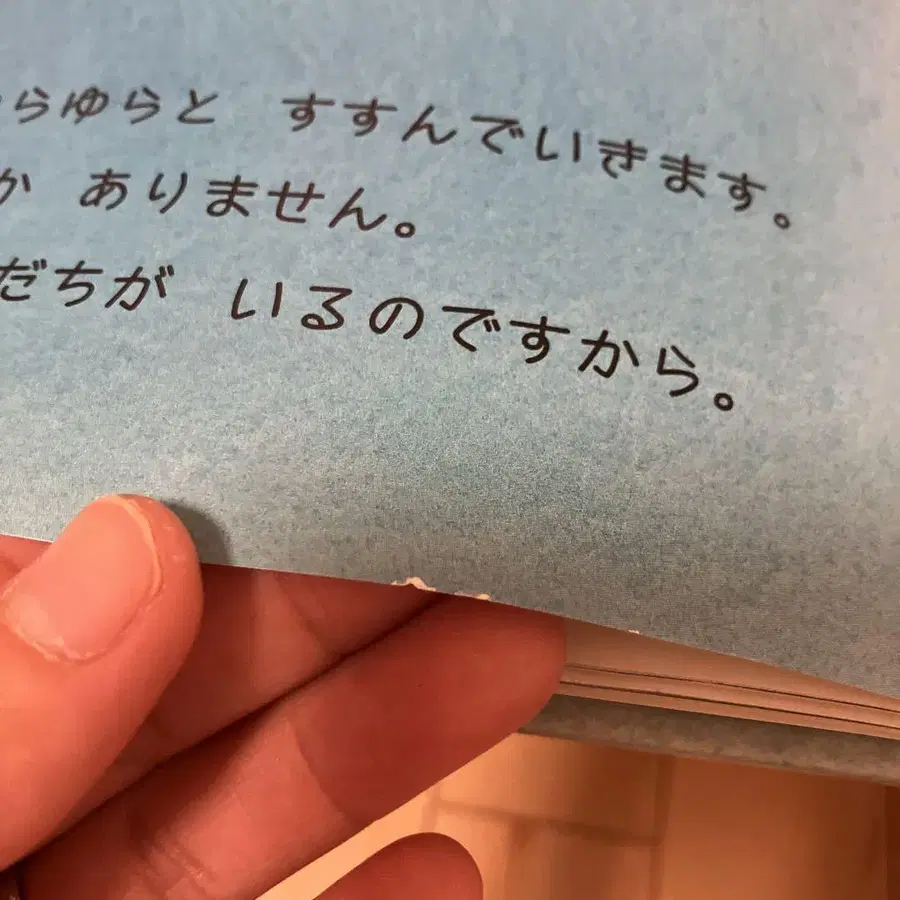 らゆらと すすんでいきます。
か ありません。
だちが いるのですから。